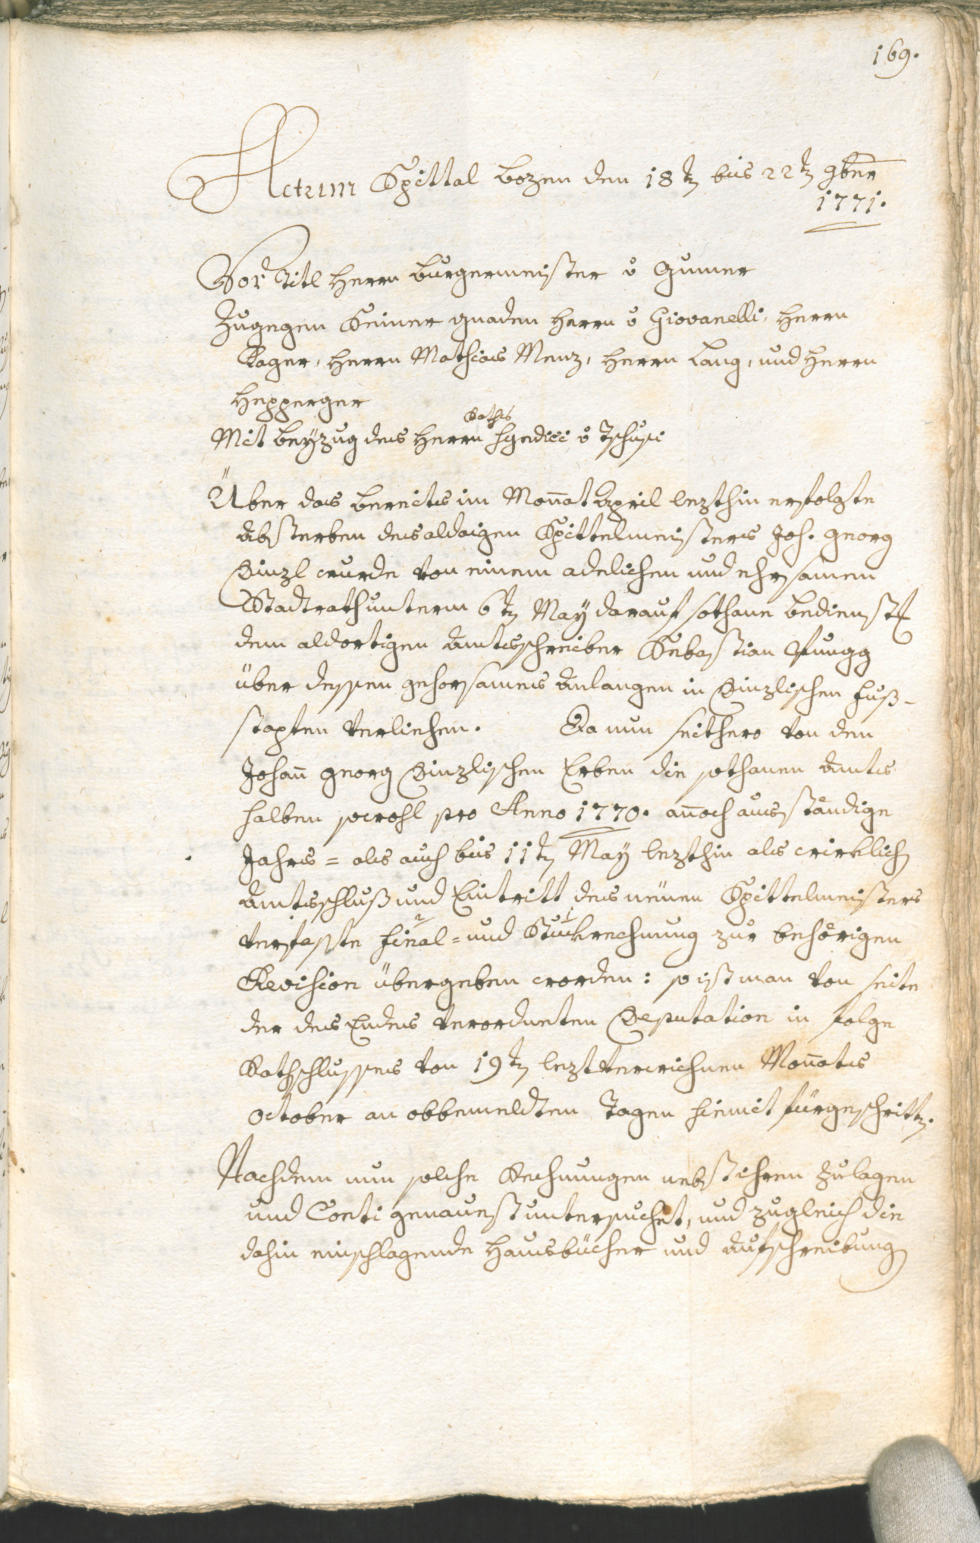 169.
Actum Spittal Bozen den 18t bis 22t 9ber
1771.
Vor Titl Herrn Burgermeister v Gumer
Zugegen Seiner gnaden Herrn v Giovanelli, Herrn
Rager, Herrn Mathias Menz, Herrn Lang, und Herrn
Hepperger
Raths
Mit beyzug des Herrn Syndici v Tschusi
Über das bereits im Monat April lezthin erfolgte
absterben des aldaigen Spittelmeisters Joh. Georg
Dinzl wurde von einem adelichen und ehrsamen
Stadtrath unterm 6t May darauf sothane bedienst
dem aldortigen Amtsschreiber Sebastian Fungg
über dessen gehorsames Anlangen in Dinzlischen Fuß-
stapfen verliehen. Da nun seithero von den
Johan Georg Dinzlischen Erben die sothanen Amts
halben sowohl pro Anno 1770. anoch ausständige
Jahrs= als auch bis 11t May lezthin als wirklich
Amtsschluß und Eintritt des neuen Spittelmeisters
verfasste Final= und Stuckrechnung zur behörigen
Revision übergeben worden: so ist man von seite
der des Endes verordneten Deputation in folge
Rathschlusses von 19t lezt verwichnen Monats
October an obbemeldten Tagen hiemit fürgeschritt.
Nachdem nun solche Rechnungen nebst ihren Zulagen
und Conti genauest untersuchet, und zugleich die
dahin einschlagende Hausbücher und Aufschreibung